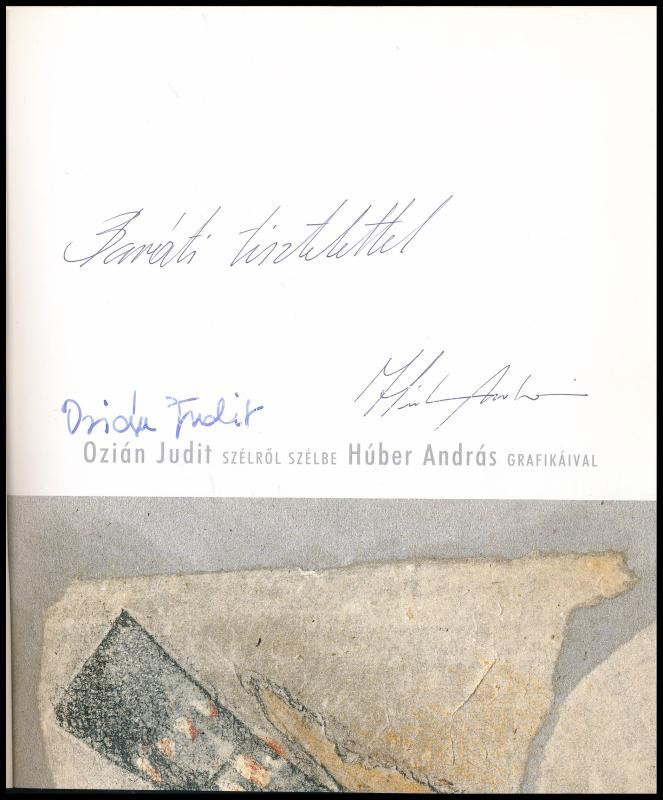 Baráti tisztelettel
Húber András
Ozián Judit
Ozián Judit SZÉLRŐL SZÉLBE Húber András GRAFIKÁIVAL